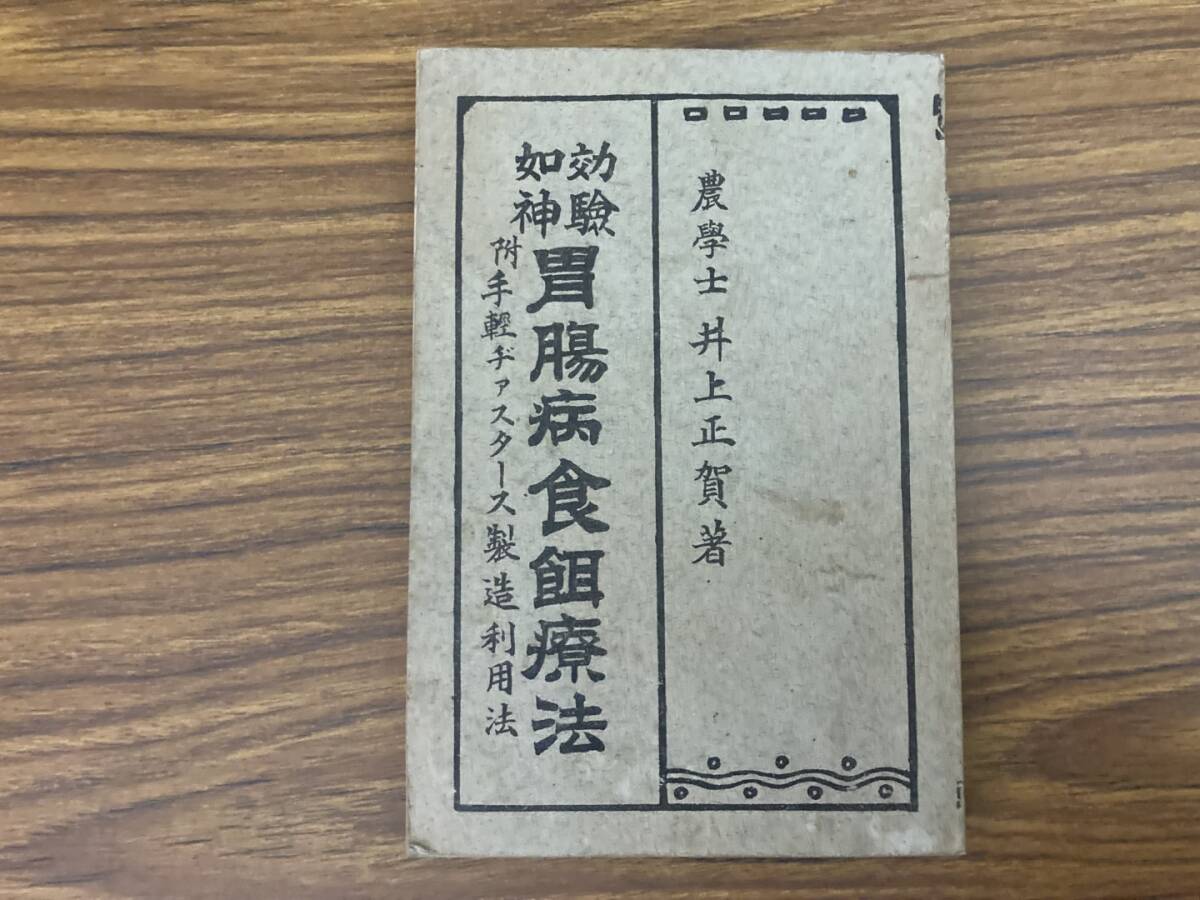 農學士 井上正賀著
効驗
如神
胃腸病食餌療法
附手輕ヂァスタース製造利用法